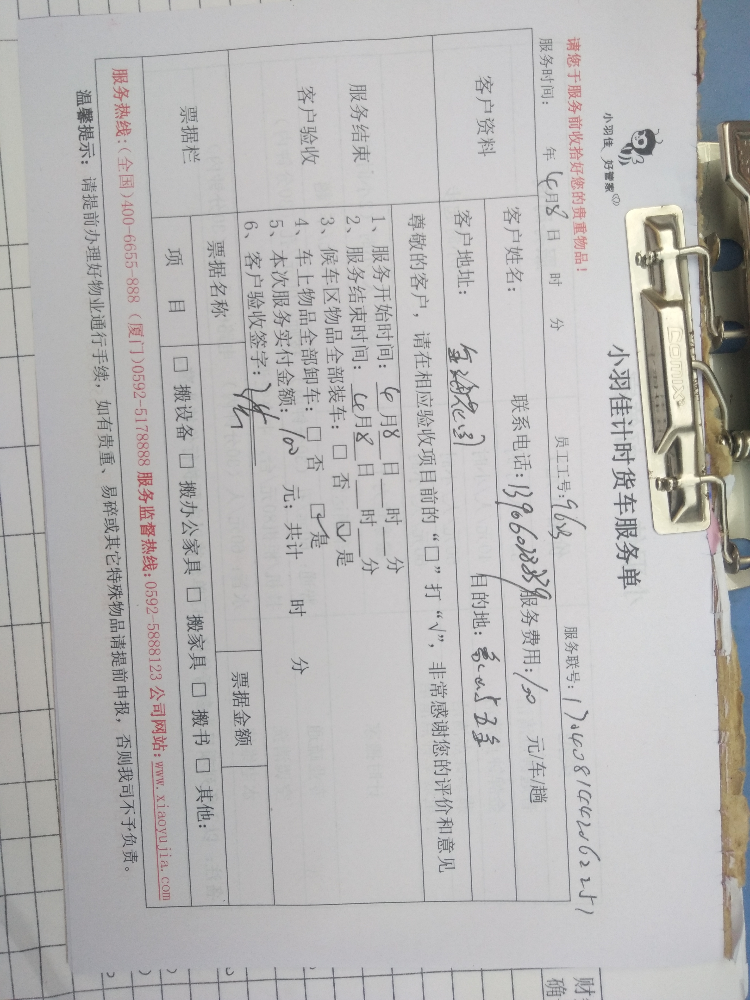 小羽佳 好管家
小羽佳计时货车服务单
请您于服务前收拾好您的贵重物品！
员工工号：
服务联号：
服务时间： 年 4月8日 时 分
客户资料
客户姓名： 联系电话： 服务费用：100 元/车/趟
客户地址： 目的地：
服务结束
客户验收
尊敬的客户，请在相应验收项目前的“□”打“√”，非常感谢您的评价和意见
1、服务开始时间：4月8日 时 分
2、服务结束时间：4月8日 时 分
3、候车区物品全部装车：□ 否 ☑ 是
4、车上物品全部卸车：□ 否 ☑ 是
5、本次服务实付金额：100 元；共计 时 分
6、客户验收签字：
票据栏
票据名称 票据金额
项 目 □ 搬设备 □ 搬办公家具 □ 搬家具 □ 搬书 □ 其他：
服务热线：（全国）400-6655-888（厦门）0592-5178888 服务监督热线：0592-5888123 公司网站：www.xiaoyujia.com
温馨提示：请提前办理好物业通行手续，如有贵重、易碎或其它特殊物品请提前申报，否则我司不予负责。
Comix
财
确